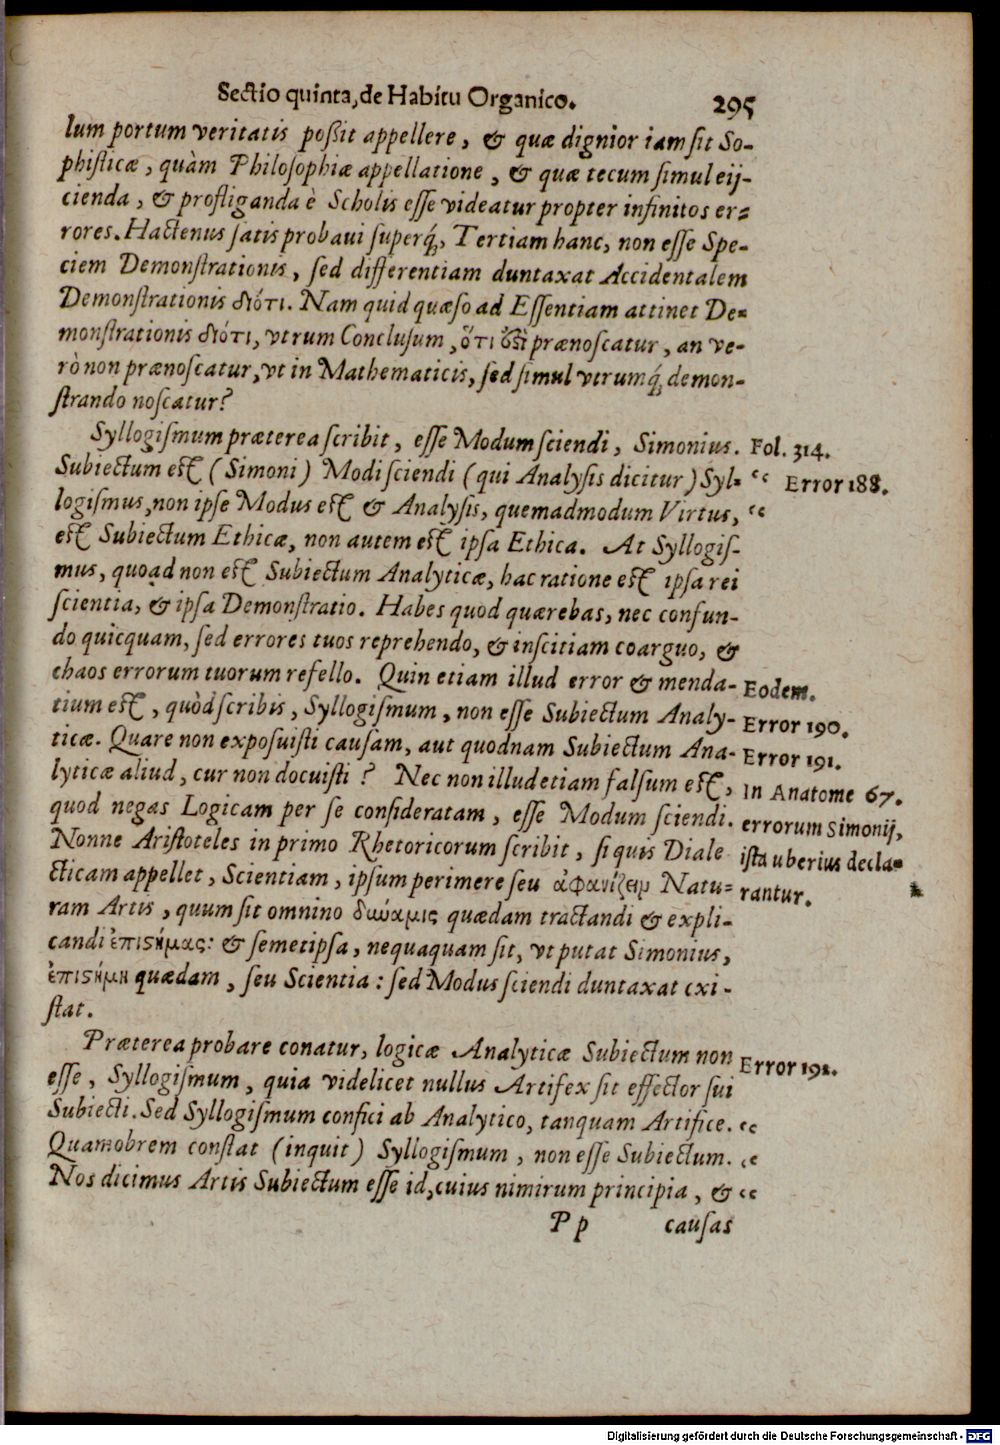 Sectio quinta, de Habitu Organico. 295
lum portum veritatis poßit appellere, & quæ dignior iam sit So-
phisticæ, quàm Philosophiæ appellatione, & quæ tecum simul eij-
cienda, & profliganda è Scholis esse videatur propter infinitos er-
rores. Hactenus satis probaui superq́, Tertiam hanc, non esse Spe-
ciem Demonstrationis, sed differentiam duntaxat Accidentalem
Demonstrationis διότι. Nam quid quæso ad Essentiam attinet De-
monstrationis διότι, vtrum Conclusum, ὅτι ἐστὶ prænoscatur, an ve-
rò non prænoscatur, vt in Mathematicis, sed simul vtrumq́, demon-
strando noscatur?
Syllogismum præterea scribit, esse Modum sciendi, Simonius. Fol. 314.
Subiectum est (Simoni) Modi sciendi (qui Analysis dicitur) Syl- “ Error 188.
logismus, non ipse Modus est & Analysis, quemadmodum Virtus, “
est Subiectum Ethicæ, non autem est ipsa Ethica. At Syllogis-
mus, quoad non est Subiectum Analyticæ, hac ratione est ipsa rei
scientia, & ipsa Demonstratio. Habes quod quærebas, nec confun-
do quicquam, sed errores tuos reprehendo, & inscitiam coarguo, &
chaos errorum tuorum refello. Quin etiam illud error & menda- Eodem.
tium est, quòd scribis, Syllogismum, non esse Subiectum Analy- Error 190.
ticæ. Quare non exposuisti causam, aut quodnam Subiectum Ana- Error 191.
lyticæ aliud, cur non docuisti? Nec non illud etiam falsum est, In Anatome 67.
quod negas Logicam per se consideratam, esse Modum sciendi. errorum Simonij,
Nonne Aristoteles in primo Rhetoricorum scribit, si quis Diale ista uberius decla-
cticam appellet, Scientiam, ipsum perimere seu ἀφανίζειν Natu- rantur.
ram Artis, quum sit omnino δυνάμις quædam tractandi & expli-
candi ἐπιστήμας: & semetipsa, nequaquam sit, vt putat Simonius,
ἐπιστήμη quædam, seu Scientia: sed Modus sciendi duntaxat exi-
stat.
Præterea probare conatur, logicæ Analyticæ Subiectum non Error 192.
esse, Syllogismum, quia videlicet nullus Artifex sit effector sui
Subiecti. Sed Syllogismum confici ab Analytico, tanquam Artifice. “
Quamobrem constat (inquit) Syllogismum, non esse Subiectum. “
Nos dicimus Artis Subiectum esse id, cuius nimirum principia, & “
P p causas
Digitalisierung gefördert durch die Deutsche Forschungsgemeinschaft - DFG